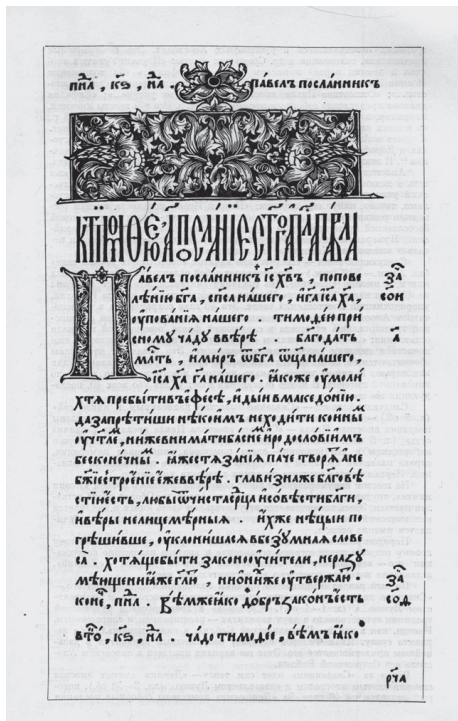 пнⷣа, кѕ҃, нⷣа. па́велъ посла́нникъ
па́велъ посла́нникъ і҆с҃ хв҃ъ, попове
лѣ́нїю бг҃а, сп҃са на́шего, и҆ г҃а і҆с҃а ха҃,
оу҆пова́нїѧ на́шего. тимоѳе́ю при́
сномꙋ ча́дꙋ в вѣ́рѣ. бл҃года́ть
мл҃ть, и҆ ми́ръ ѿ бг҃а ѿц҃а на́шего,
і҆с҃а ха҃ г҃а на́шего. ꙗ҆́коже оу҆моли́
хтѧ пребы́ти въ е҆фе́сѣ, и҆ды́и в македо́нїю.
да запрѣти́ши нѣ́коимъ не ходи́ти
ниже внима́ти ба́снеⷨ и҆ родосло́вїимъ
бесконе́чныⷨ. ꙗ҆́же стѧза́нїѧ па́че творѧ́тъ не
бж҃їе строе́нїе е҆́же в вѣ́рѣ. бл҃говѣ
сти́ю е҆́сть, любы̀ ѿ чи́ста срⷣца и҆ со́вѣсти бл҃ги,
и҆ вѣ́ры нелицемѣ́рныѧ. и҆́хже нѣ́цыи по
грѣши́вше, оу҆клони́шасѧ в безꙋ́мнаѧ слове
са̀. хотѧ́ще бы́ти законоꙋчи́тели, не разꙋ
мѣ́юще ни ꙗ҆́же гл҃ю, ни ѡ҆ ни́хже оу҆твержа́ю.
коне́ⷰ, пнⷣа. вѣ́мже ꙗ҆́ко добръ̀ зако́нъ е҆́сть
кѕ҃, нⷣа. ча́до тимоѳе́е, вѣ́мъ ꙗ҆́ко